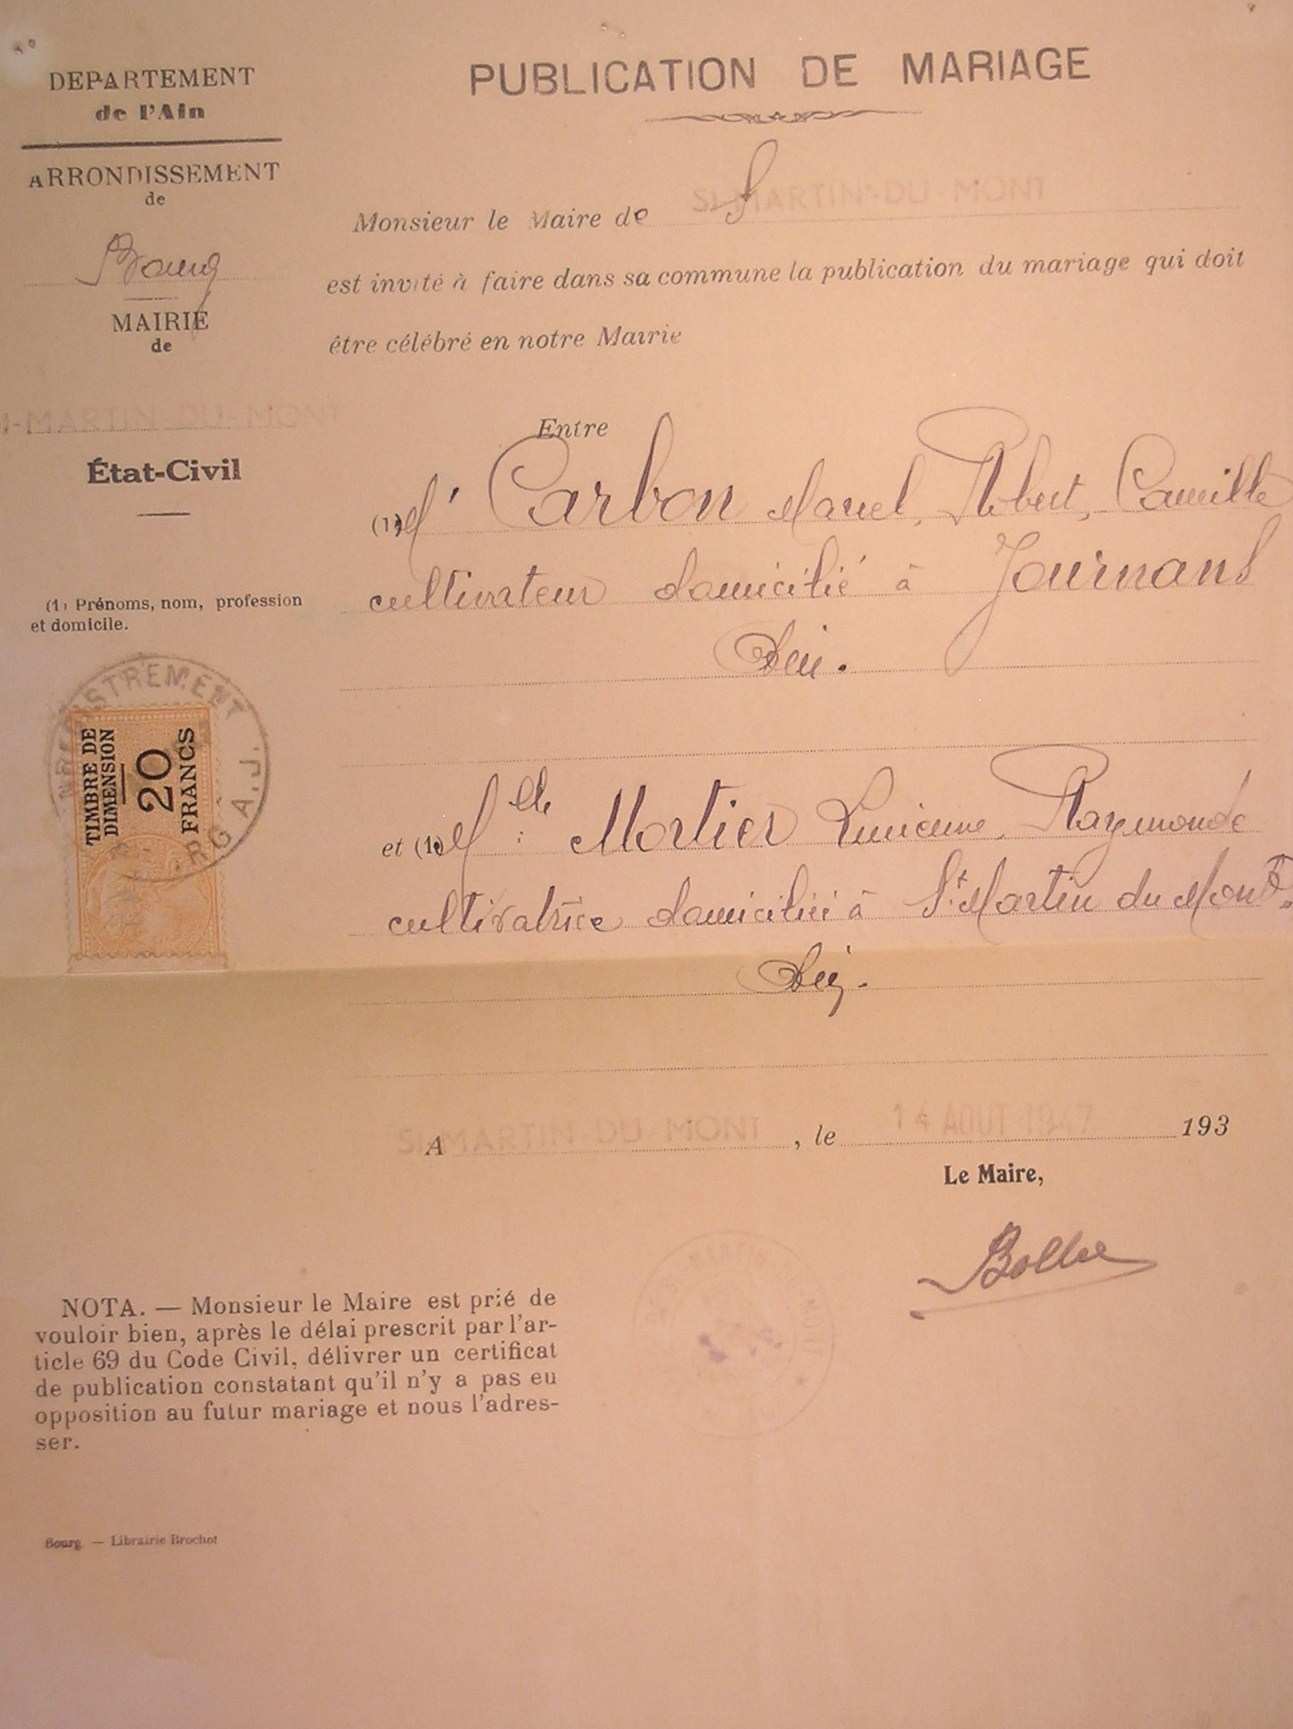 DEPARTEMENT
de l'Ain
ARRONDISSEMENT
de
Bourg
MAIRIE
de
St-MARTIN-DU-MONT
État-Civil
(1) Prénoms, nom, profession
et domicile.
ENREGISTREMENT
A.J.
TIMBRE DE
DIMENSION
20
FRANCS
PUBLICATION DE MARIAGE
Monsieur le Maire de St-MARTIN-DU-MONT
est invité à faire dans sa commune la publication du mariage qui doit
être célébré en notre Mairie
Entre
(1) Mr Carbon Marcel, Robert, Camille
cultivateur domicilié à Journans
Ain.
et (1) Melle Mortier Lucienne, Raymonde
cultivatrice domiciliée à St Martin du Mont.
Ain.
A St-MARTIN-DU-MONT, le 14 AOUT 1947 193
Le Maire,
NOTA. — Monsieur le Maire est prié de
vouloir bien, après le délai prescrit par l'ar-
ticle 69 du Code Civil, délivrer un certificat
de publication constatant qu'il n'y a pas eu
opposition au futur mariage et nous l'adres-
ser.
Bourg — Librairie Brochot